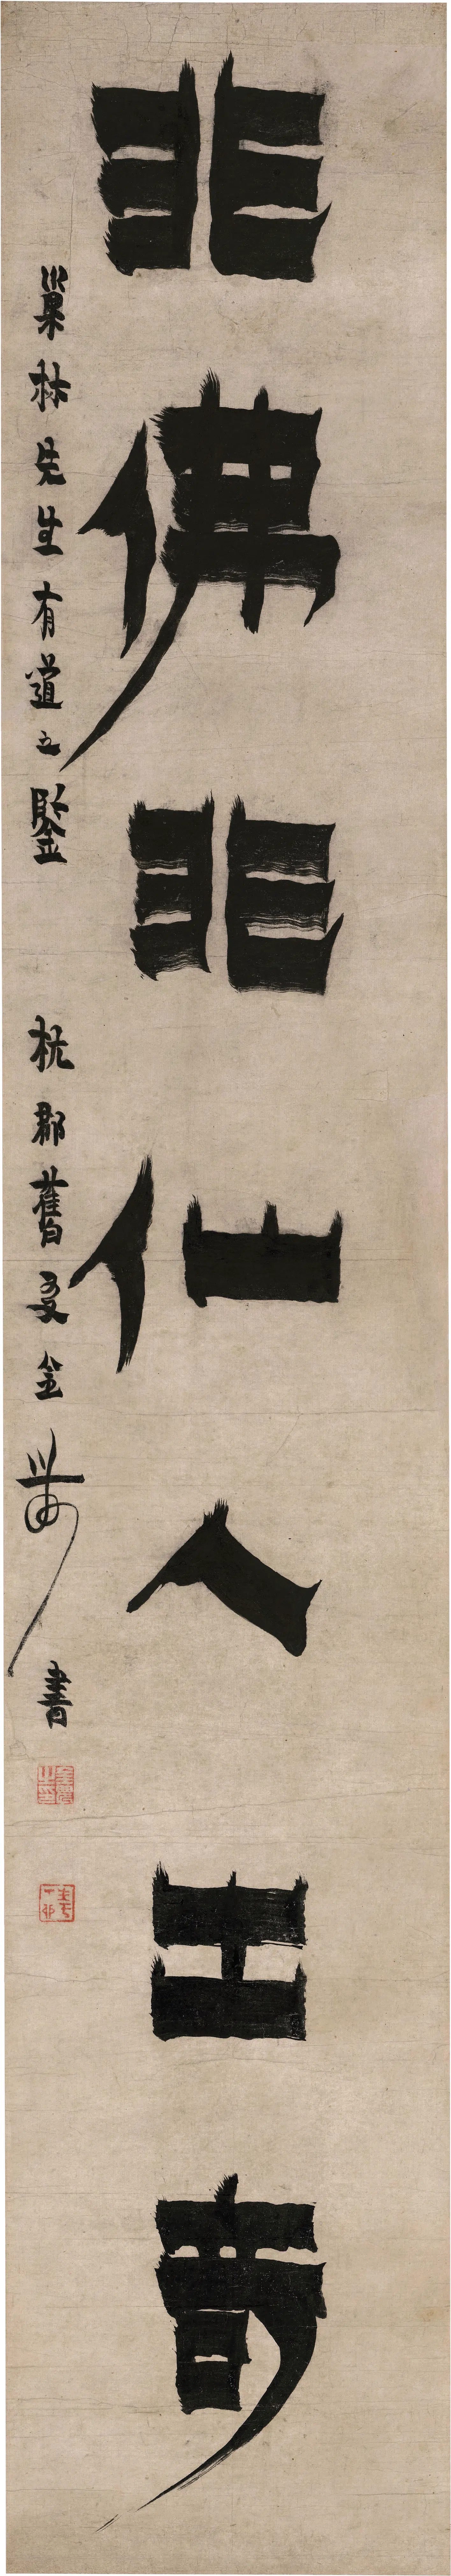 非佛非仙人出奇
巢林先生有道之鑒 杭郡舊友金農書